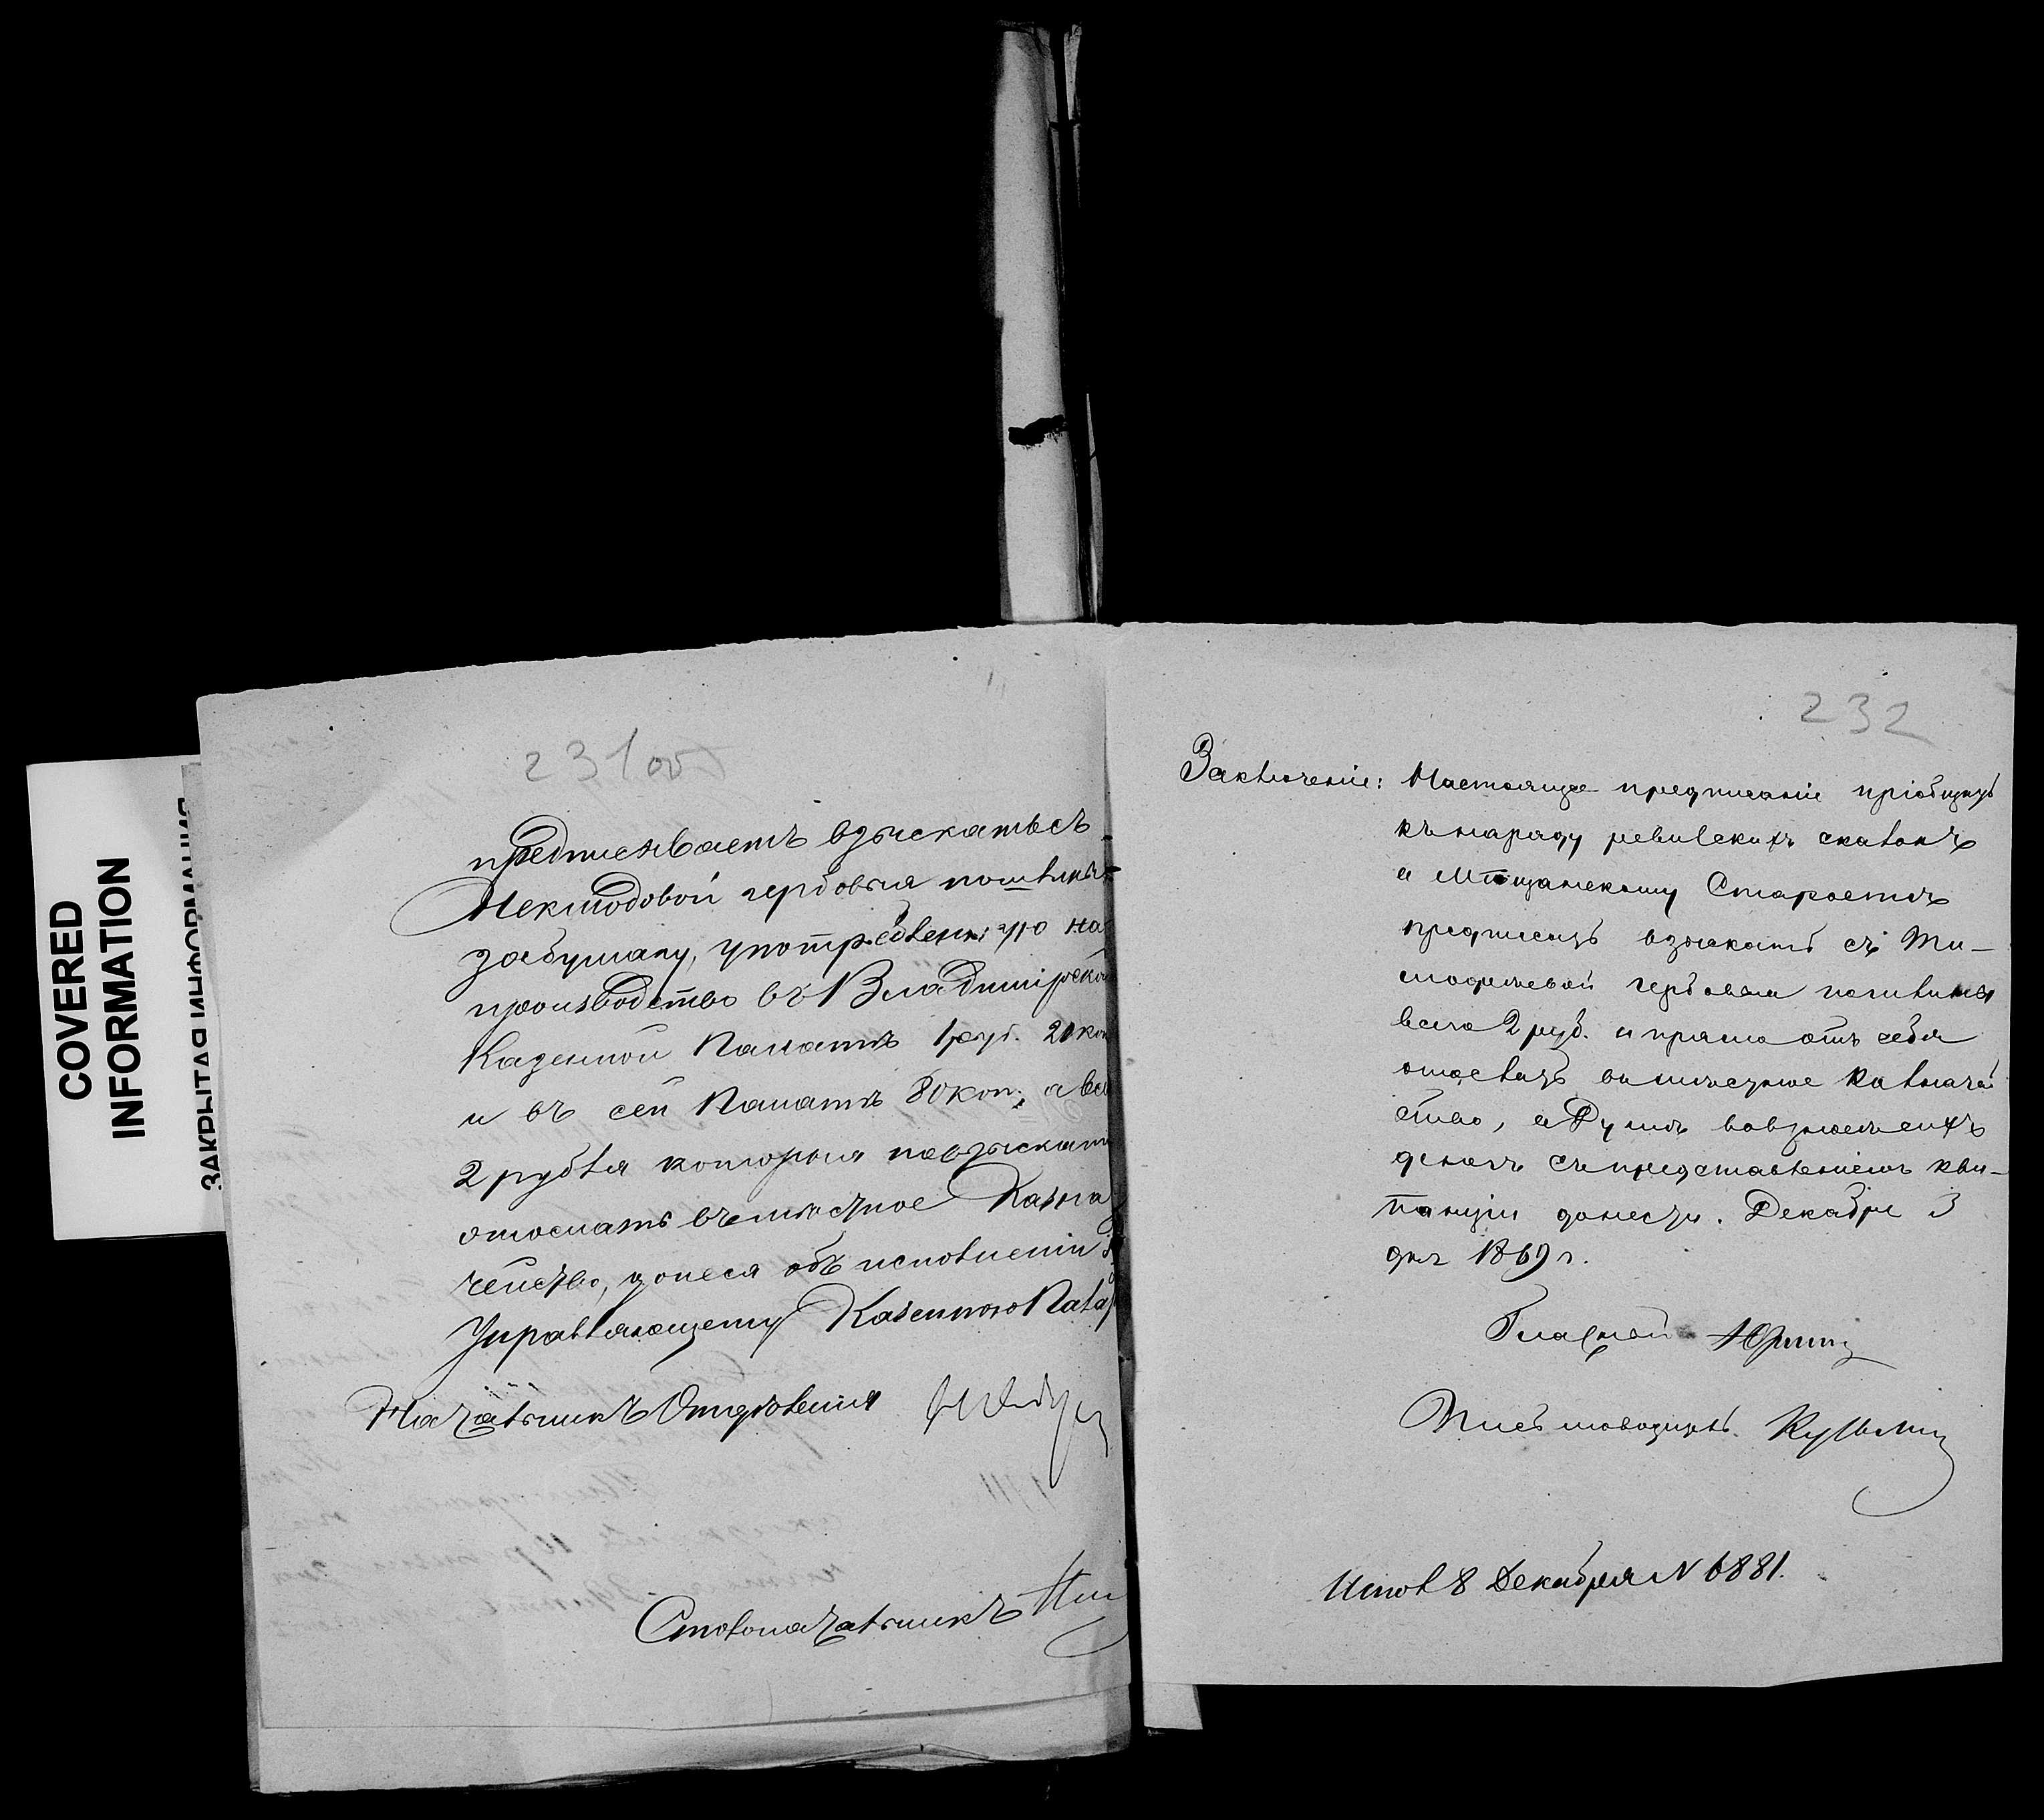 COVERED
INFORMATION
ЗАКРЫТАЯ ИНФОРМАЦИЯ
231 об
предписываетъ взыскать съ
гербовыя пошлины
за бумагу, употребленную на
производство въ Владимірской
Казенной Палатѣ 1 руб. 20 коп
и въ сей Палатѣ 80 коп, а все
2 рубля которыя по взысканіи
отослать въ мѣстное Казна
чейство, донеся объ исполненіи
Управляющему Казенною Пала
Начальникъ Отдѣленія
Столоначальникъ
232
Заключеніе: Настоящее предписаніе пріобщить
къ наряду ревизскихъ сказокъ
а Мѣщанскому Старостѣ
предписать взыскать съ Ти-
мофеевой гербовыя пошлины
всего 2 руб. и прямо отъ себя
отослать въ мѣстное Казначей
ство, а Думѣ
денегъ съ представленіемъ кви-
танціи донести. Декабря 3
дня 1869 г.
Гласной
Письмоводитель Кузьмин
Испол 8 Декабря N 6881.